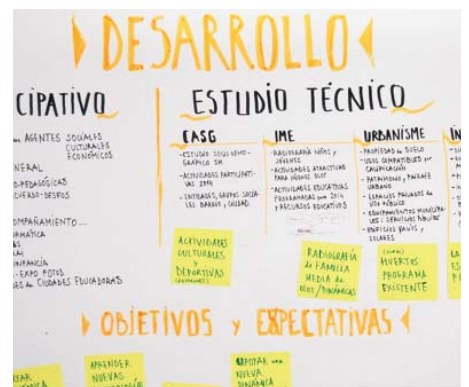 DESARROLLO
CIPATIVO
AGENTES SOCIALES
CULTURALES
ECONÓMICOS
NERAL
O-PEDAGÓGICAS
CUERDO-DESEOS
OMPAÑAMIENTO...
ORMÁTICA
INFANCIA
-EXPO FOTOS
DE CIUDADES EDUCADORAS
ESTUDIO TÉCNICO
CASG
-ESTUDIO SOCIO DEMO-
GRÁFICO SM
-ACTIVIDADES PARTICIPATI-
VAS 2014
-ENTIDADES, GRUPOS SOCIA-
LES BARRIO y CIUDAD.
ACTIVIDADES
CULTURALES
y
DEPORTIVAS
IME
-RADIOGRAFÍA NIÑOS y
JÓVENES
-ACTIVIDADES ATRACTIVAS
PARA JÓVENES
-ACTIVIDADES EDUCATIVAS
PROGRAMADAS 2014
y RECURSOS EDUCATIVOS
RADIOGRAFÍA
DE FAMILIA
MEDIA DE
URBANISME
-PROPIEDAD de SUELO
-USOS COMPATIBLES por
CALIFICACIÓN
-PATRIMONIO y PAISAJE
URBANO
-ESPACIOS PRIVADOS de
USO PÚBLICO
-EQUIPAMIENTOS MUNICIPA-
LES / SERVICIOS PÚBLICOS
-EDIFICIOS VACÍOS y
SOLARES
HUERTOS
PROGRAMA
EXISTENTE
OBJETIVOS y EXPECTATIVAS
APRENDER
NUEVAS
APORTAR una
NUEVA
DINÁMICA